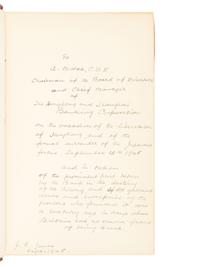 To
A. Morse, C.B.E
Chairman of the Board of Directors
and Chief Manager
of
The Hongkong and Shanghai
Banking Corporation
On the occasion of the liberation
of Hongkong and of the
formal surrender of the Japanese
forces September 16th 1945
and in token
of the prominent part taken
by the Bank in the destiny
of the Colony and of the
and enterprise of the
pioneers who founded it
a century ago in days when
Britain had no
of being